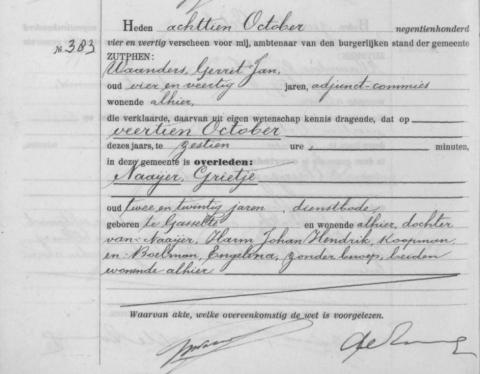 Heden achttien October negentienhonderd
No. 383 vier en veertig verscheen voor mij, ambtenaar van den burgerlijken stand der gemeente
ZUTPHEN:
Waanders, Gerrit Jan,
oud vier en veertig jaren, adjunct-commies
wonende alhier,
die verklaarde, daarvan uit eigen wetenschap kennis dragende, dat op
veertien October
dezes jaars, te zestien ure, minuten,
in deze gemeente is overleden:
Naaijer, Grietje
oud twee en twintig jaren, dienstbode
geboren te Gasselte en wonende alhier, dochter
van Naaijer, Harm Johan Hendrik, Koopman,
en Boelman, Engelina, zonder beroep, beiden
wonende alhier
Waarvan akte, welke overeenkomstig de wet is voorgelezen.